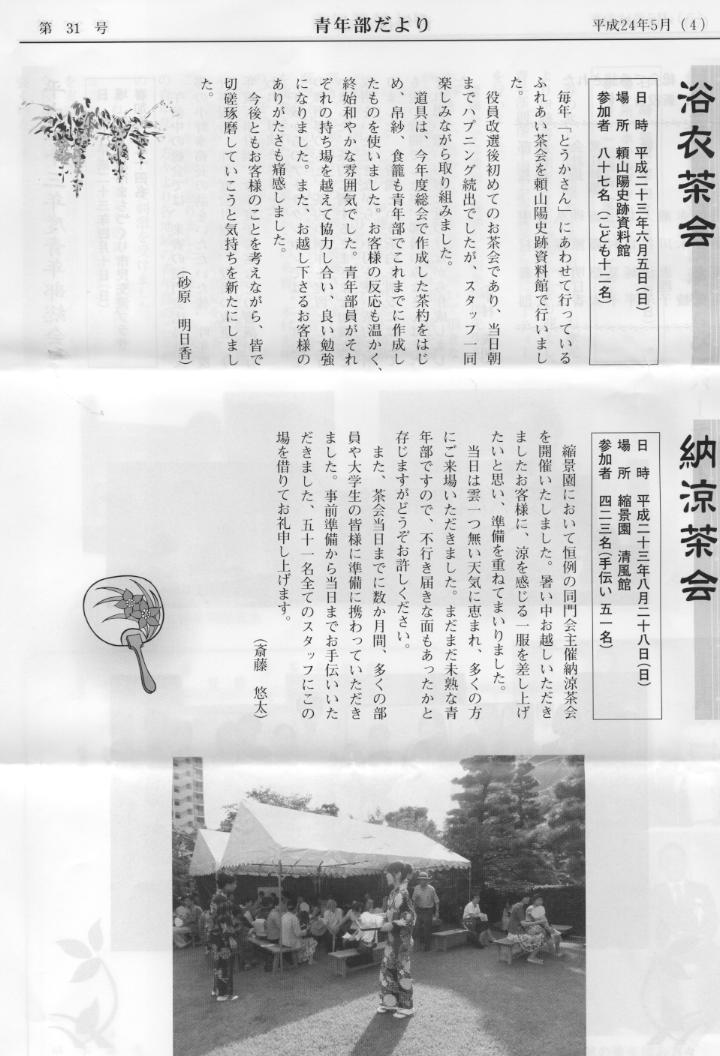 第 31 号
青年部だより
平成24年5月（4）
浴衣茶会
日　時　平成二十三年六月五日(日)
場　所　頼山陽史跡資料館
参加者　八十七名（こども十二名）
毎年「とうかさん」にあわせて行っている
ふれあい茶会を頼山陽史跡資料館で行いまし
た。
役員改選後初めてのお茶会であり、当日朝
までハプニング続出でしたが、スタッフ一同
楽しみながら取り組みました。
道具は、今年度総会で作成した茶杓をはじ
め、帛紗、食籠も青年部でこれまでに作成し
たものを使いました。お客様の反応も温かく、
終始和やかな雰囲気でした。青年部員がそれ
ぞれの持ち場を越えて協力し合い、良い勉強
になりました。また、お越し下さるお客様の
ありがたさも痛感しました。
今後ともお客様のことを考えながら、皆で
切磋琢磨していこうと気持ちを新たにしまし
た。
（砂原　明日香）
納涼茶会
日　時　平成二十三年八月二十八日(日)
場　所　縮景園　清風館
参加者　四二三名(手伝い 五一名)
縮景園において恒例の同門会主催納涼茶会
を開催いたしました。暑い中お越しいただき
ましたお客様に、涼を感じる一服を差し上げ
たいと思い、準備を重ねてまいりました。
当日は雲一つ無い天気に恵まれ、多くの方
にご来場いただきました。まだまだ未熟な青
年部ですので、不行き届きな面もあったかと
存じますがどうぞお許しください。
また、茶会当日までに数か月間、多くの部
員や大学生の皆様に準備に携わっていただき
ました。事前準備から当日までお手伝いいた
だきました、五十一名全てのスタッフにこの
場を借りてお礼申し上げます。
（斎藤　悠太）